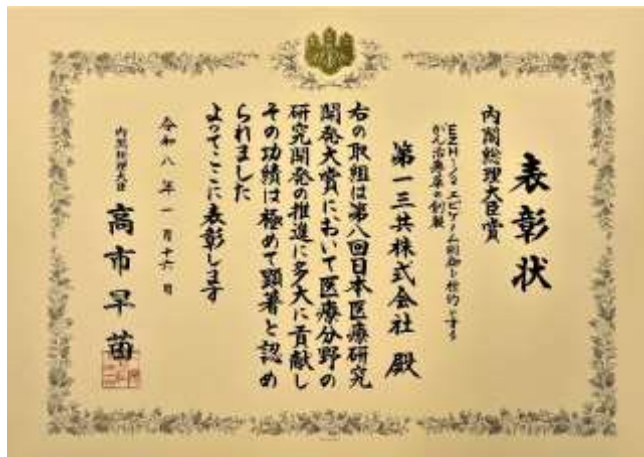 表彰状
内閣総理大臣賞
EZH1/2エピゲノム制御を標的とする
がん治療薬の創製
第一三共株式会社 殿
右の取組は第八回日本医療研究
開発大賞において医療分野の
研究開発の推進に多大に貢献し
その功績は極めて顕著と認め
られました
よってここに表彰します
令和八年一月十六日
内閣総理大臣
高市早苗